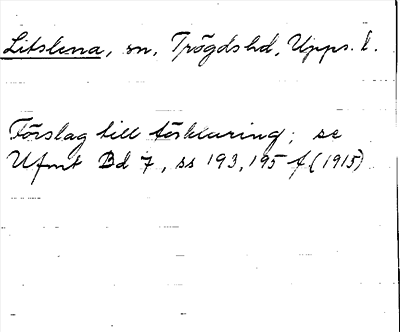 Litslena, sn, Trögds hd, Upps. l.
Förslag till förklaring; se
Ufmt Bd 7, ss 193, 195 f (1915)